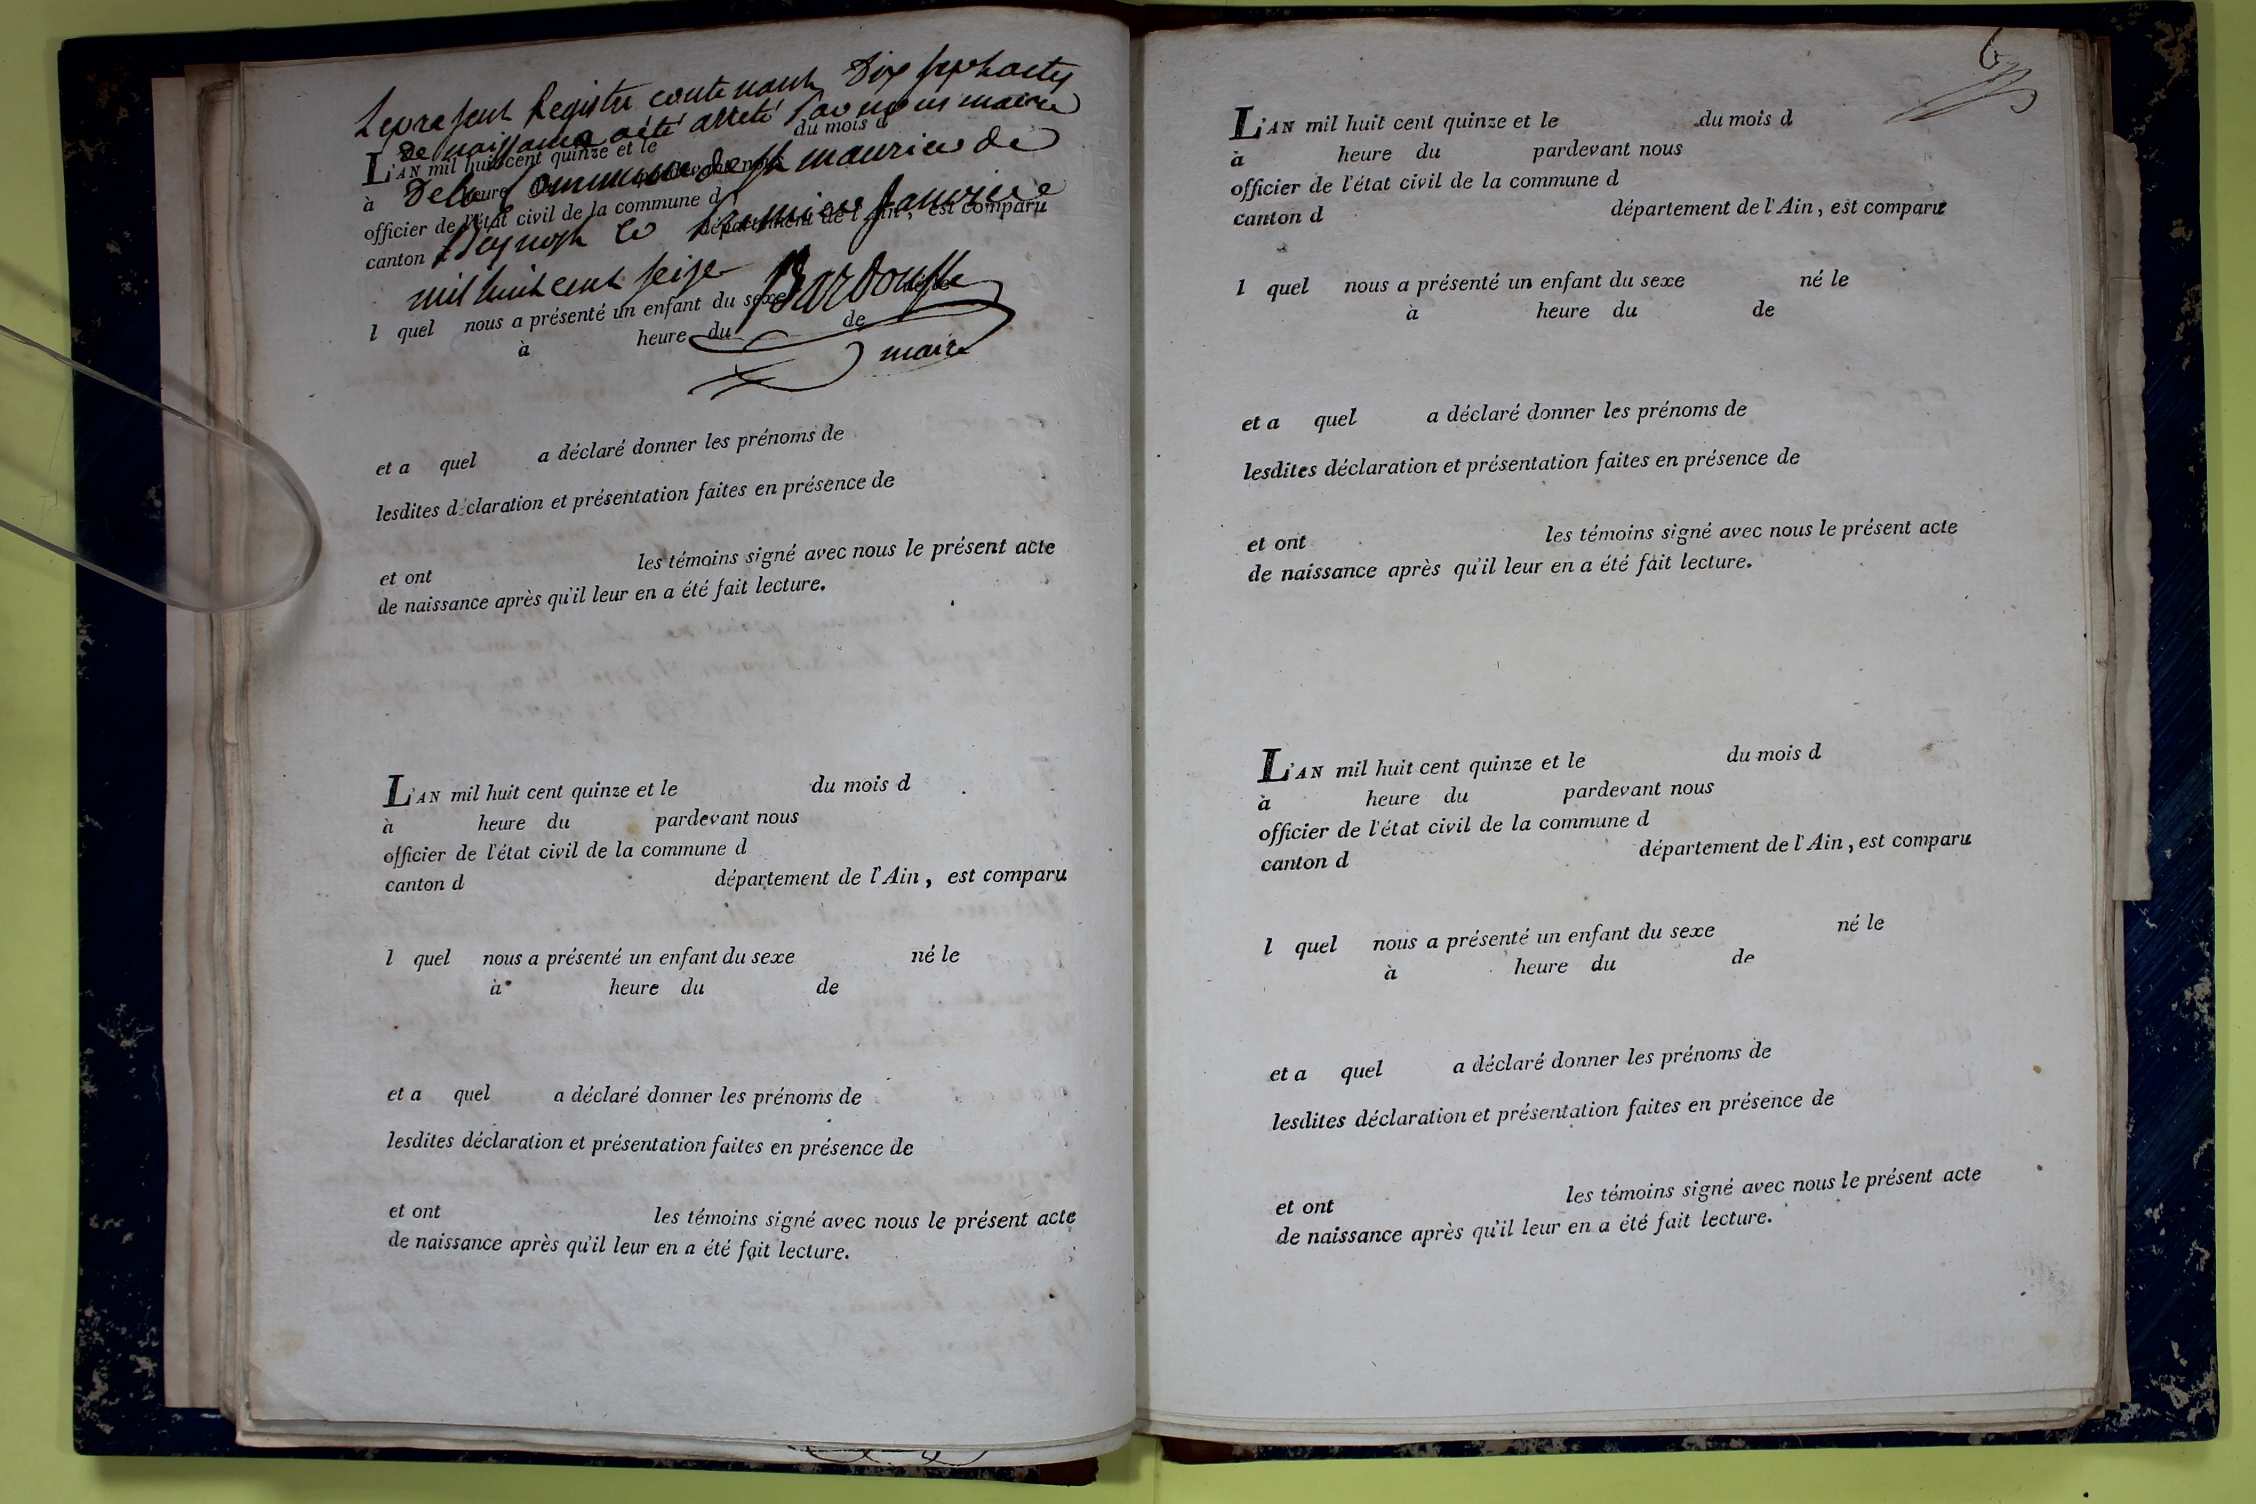 Le present Registre contenant Dix sept actes
de naissance a été arreté par nous maire
De la Commune de St maurice de
Beynost le premier Janvier
mil huit cent seize
maire
L'AN mil huit cent quinze et le du mois d
à heure du pardevant nous
officier de l'état civil de la commune d
canton département de l'Ain, est comparu
l quel nous a présenté un enfant du sexe
à heure du de
et a quel a déclaré donner les prénoms de
lesdites déclaration et présentation faites en présence de
et ont les témoins signé avec nous le présent acte
de naissance après qu'il leur en a été fait lecture.
L'AN mil huit cent quinze et le du mois d
à heure du pardevant nous
officier de l'état civil de la commune d
canton d département de l'Ain, est comparu
l quel nous a présenté un enfant du sexe né le
à heure du de
et a quel a déclaré donner les prénoms de
lesdites déclaration et présentation faites en présence de
et ont les témoins signé avec nous le présent acte
de naissance après qu'il leur en a été fait lecture.
6
L'AN mil huit cent quinze et le du mois d
à heure du pardevant nous
officier de l'état civil de la commune d
canton d département de l'Ain, est comparu
l quel nous a présenté un enfant du sexe né le
à heure du de
et a quel a déclaré donner les prénoms de
lesdites déclaration et présentation faites en présence de
et ont les témoins signé avec nous le présent acte
de naissance après qu'il leur en a été fait lecture.
L'AN mil huit cent quinze et le du mois d
à heure du pardevant nous
officier de l'état civil de la commune d
canton d département de l'Ain, est comparu
l quel nous a présenté un enfant du sexe né le
à heure du de
et a quel a déclaré donner les prénoms de
lesdites déclaration et présentation faites en présence de
et ont les témoins signé avec nous le présent acte
de naissance après qu'il leur en a été fait lecture.